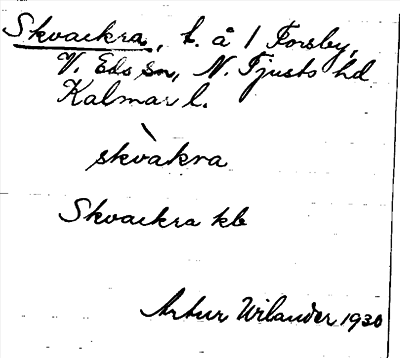 Skvackra, t. å 1 Forsby,
V. Eds sn, N. Tjusts hd
Kalmar l.
skvàkra
Skvackra kb
Artur Wilander 1930